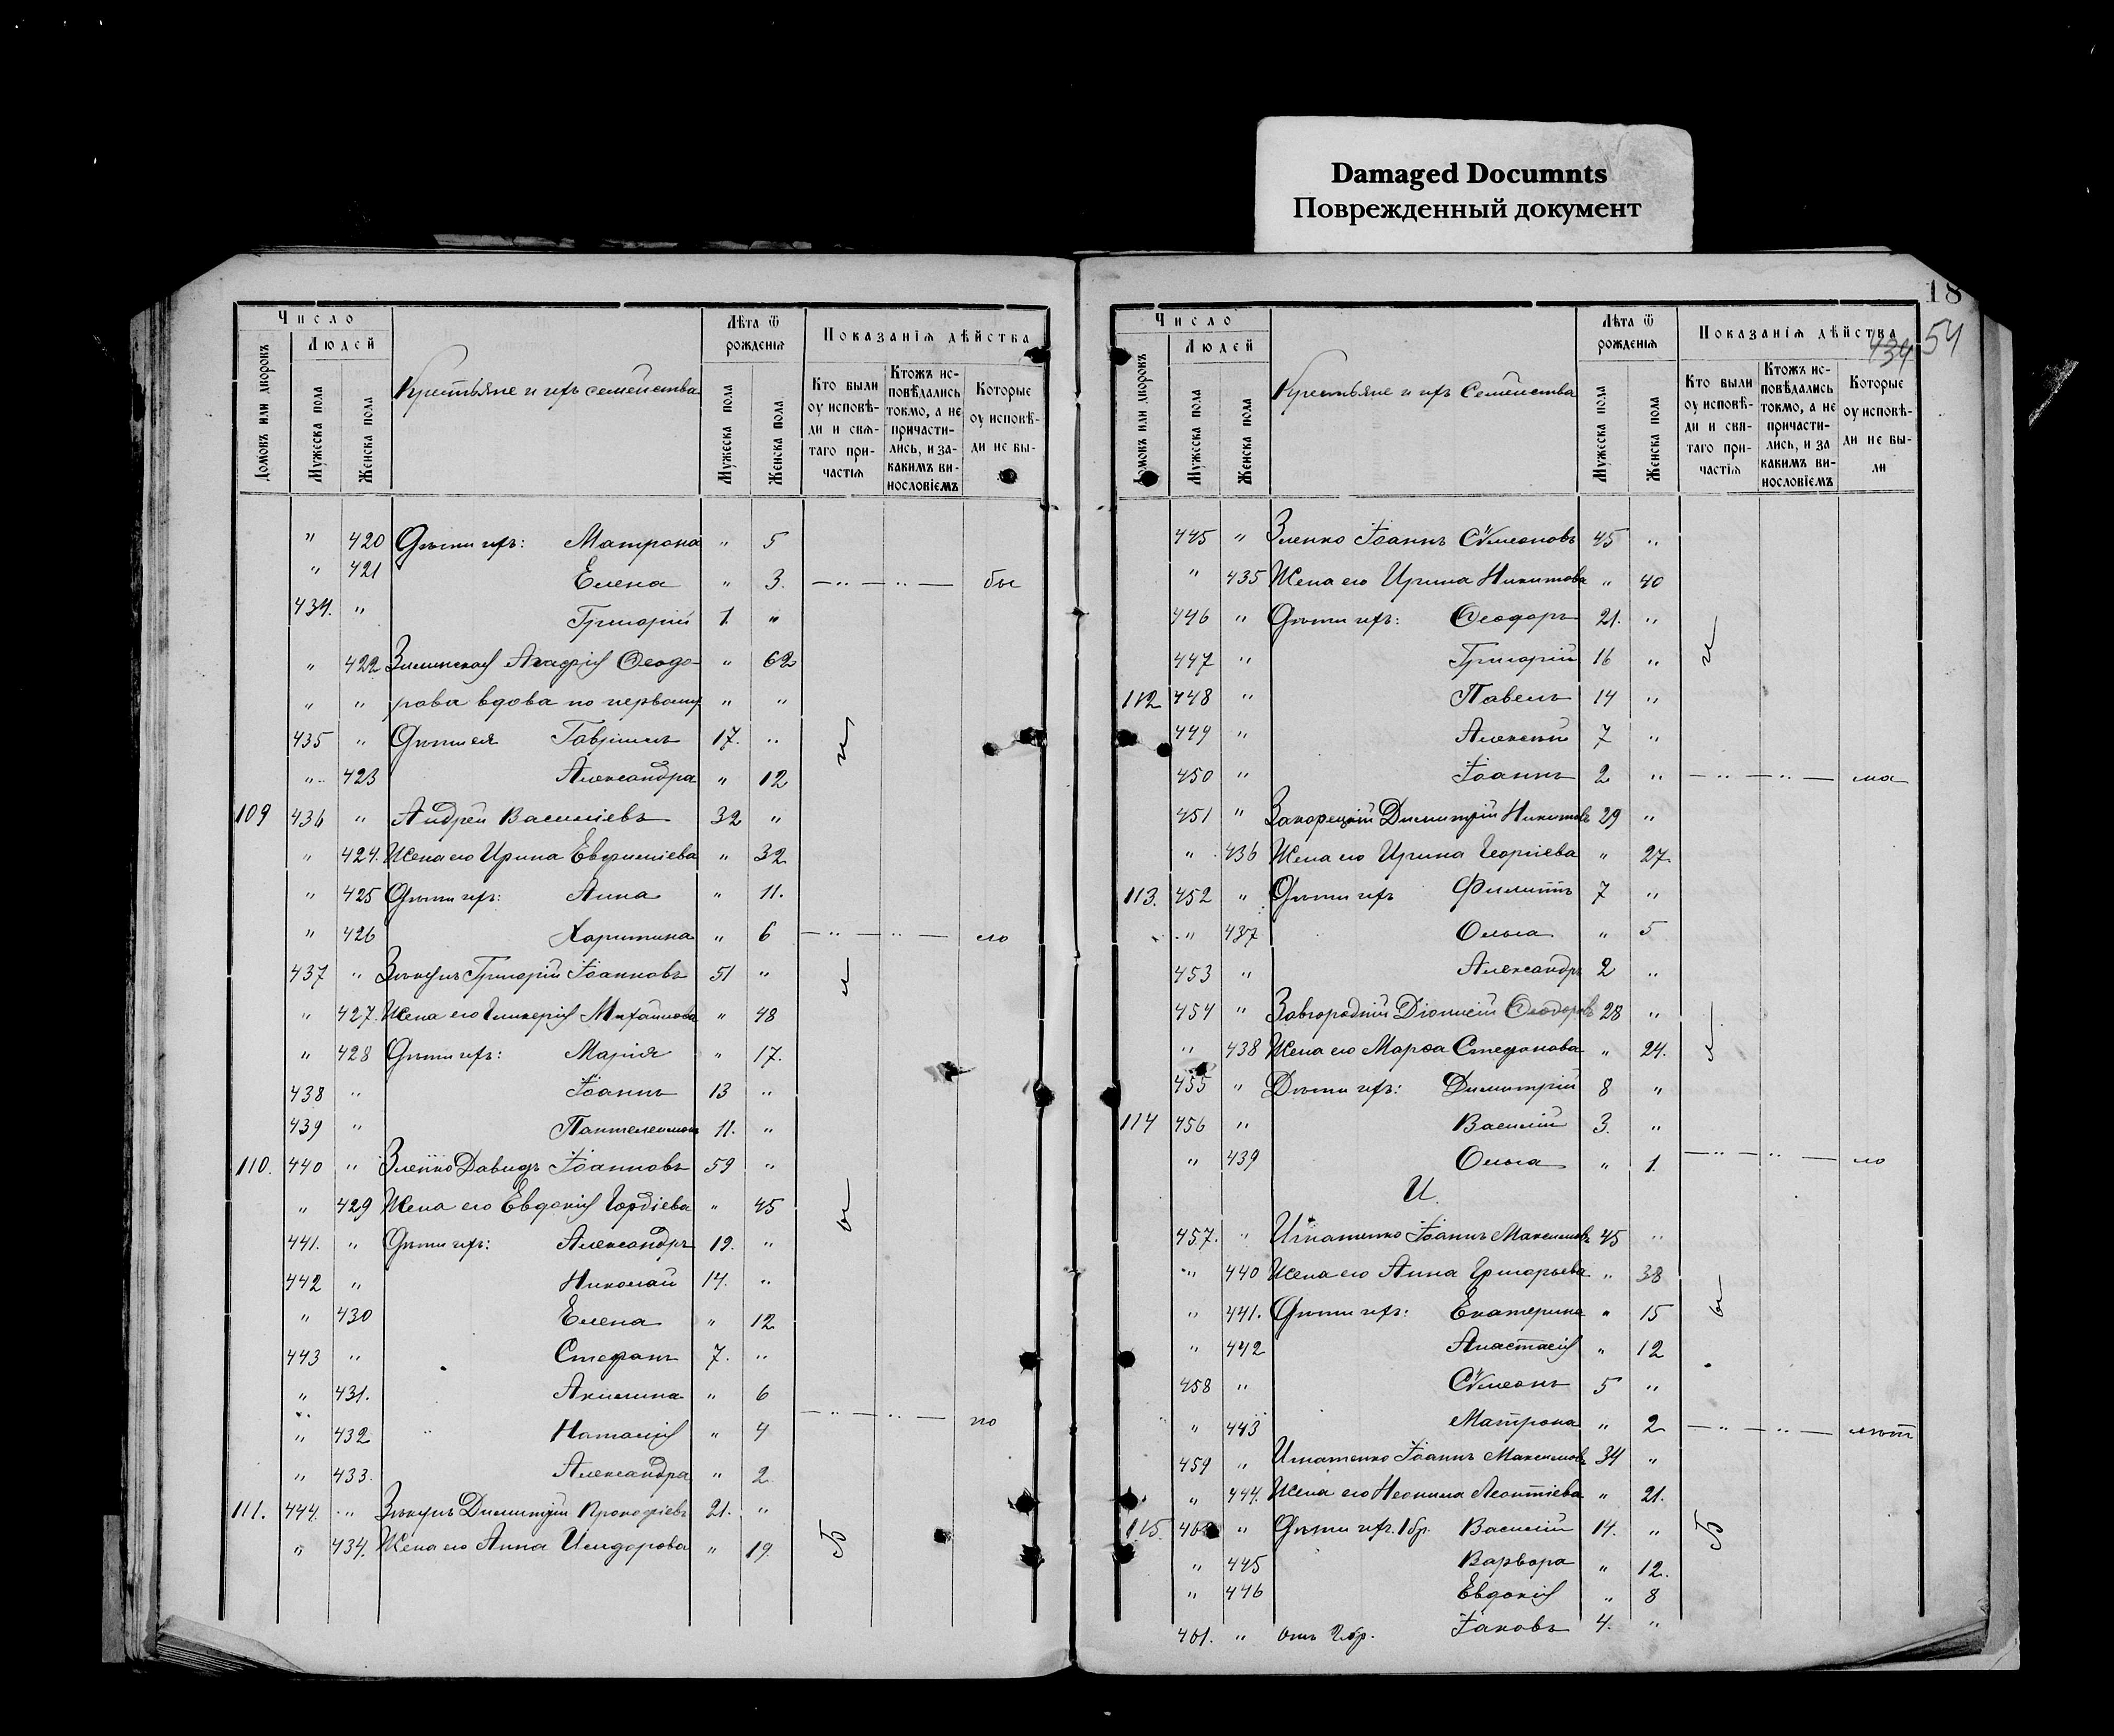 Damaged Documnts
Поврежденный документ
18
54
434
Число
Людей
Домовъ или дворовъ
Мужеска пола
Женска пола
Крестьяне и ихъ семейства
Лѣта ѿ рожденія
Мужеска пола
Женска пола
Показанія дѣйства
Кто были оу исповѣди и свѧтаго причастіѧ
Ктожъ исповѣдались токмо, а не причастились, и за какимъ винословіемъ
Которые оу исповѣди не бы-
" 420 Дѣти ихъ: Матрона " 5
" 421 Елена " 3. — " — " — бы
434. " Григорій 1. "
" 422 Агафія Ѳеодо- " 62
" " рова вдова по первому " "
435 " Дѣти ея Гавріилъ 17. "
" 423 Александра " 12
109 436 " Андрей Василіевъ 32 "
" 424. Жена его Ирина Евфиміева " 32
" 425 Дѣти ихъ: Анна " 11.
" 426 Харитина " 6 — " — " — ло
437 " Григорій Іоанновъ 51 "
" 427. Жена его Гликерія Михайлова " 48
" 428 Дѣти ихъ: Марія " 17.
438 " Іоаннъ 13 "
439 " Пантелеимонъ 11. "
110. 440 " Зленко Давидъ Іоанновъ 59 "
" 429 Жена его Евдокія Гордіева " 45
441. " Дѣти ихъ: Александръ 19. "
442 " Николай 14. "
" 430 Елена " 12
443 " Стефанъ 7. "
" 431. Акилина " 6
" 432 Наталія " 4 — " — " — по
" 433. Александра " 2
111. 444. " Димитрій Прокофіевъ 21. "
" 434. Жена его Анна Исидорова " 19.
Число
Людей
Домовъ или дворовъ
Мужеска пола
Женска пола
Крестьяне и ихъ Семейства
Лѣта ѿ рожденія
Мужеска пола
Женска пола
Показанія дѣйства
Кто были оу исповѣди и свѧтаго причастіѧ
Ктожъ исповѣдались токмо, а не причастились, и за какимъ винословіемъ
Которые оу исповѣди не были
445 " Зленко Іоаннъ Сѵмеоновъ 45 "
" 435 Жена его Ирина Никитова " 40
446 " Дѣти ихъ: Ѳеодоръ 21. "
447 " Григорій 16 "
112 448 " Павелъ 14 "
449 " Алексій 7 "
450 " Іоаннъ 2 " — " — " — ма
451 " Димитрій Никитовъ 29 "
" 436 Жена его Ирина Георгіева " 27.
113. 452 " Дѣти ихъ Филиппъ 7 "
" 437 Ольга " 5
453 " Александръ 2 "
454 " Завгородній Діонисій Ѳеодоровъ 28 "
" 438 Жена его Марѳа Стефанова " 24.
455 " Дѣти ихъ: Димитрій 8 "
114 456 " Василій 3. "
" 439 Ольга " 1. — " — " — ло
И.
457. " Игнатенко Іоаннъ Максимовъ 45 "
" 440 Жена его Анна Григорьева " 38
" 441. Дѣти ихъ: Екатерина " 15
" 442 Анастасія " 12
458 " Сѵмеонъ 5 "
" 443 Матрона " 2 — " — " — лѣт
459 " Игнатенко Іоаннъ Максимовъ 34 "
" 444. Жена его Неонила Леонтіева " 21.
115. 460 " Дѣти ихъ. 1 бр. Василій 14. "
" 445 Варвара " 12.
" 446 Евдокія " 8
461. " отъ 2 бр. Іаковъ 4. "